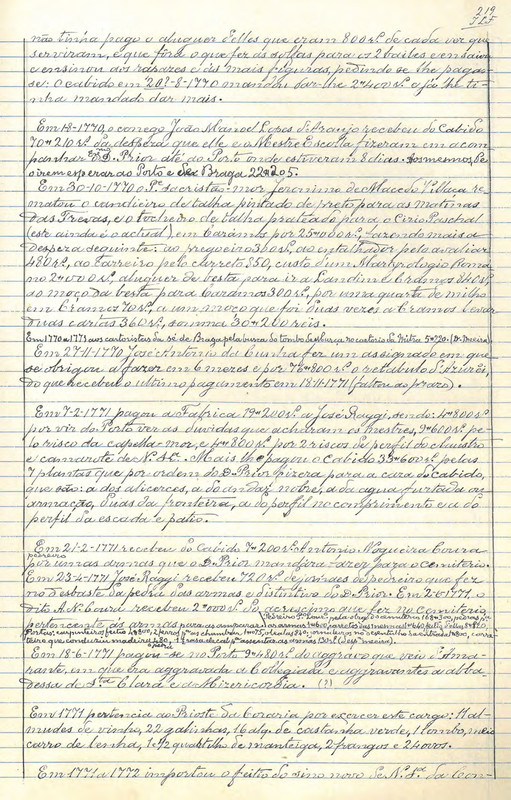 219
não tinha pago o aluguer d'elles que eram 800 rs. de cada vez que
serviram, e que fôra o que fez as soltas para os 2 bailes e ensaiou
e ensinou aos rapazes e ás mais figuras, pedindo se lhe pagas-
se: O cabido em 20-8-1770 mandou dar-lhe 2$400 rs. e já lhe ti-
nha mandado dar mais.
Em 18-1770 o conego João Manoel Lopes d'Araujo recebeu do Cabido
70$210 rs. da despeza que elle e o Mestre Escola fizeram em acom-
panhar D. Prior até ao Porto onde estiveram 8 dias.
o irem esperar ao Porto e Braga 22$205.
Em 30-10-1770 o Pe. sacristão-mor Jeronimo de Macedo re-
matou o candieiro de talha pintado de preto para as matinas
das Trevas, e o tocheiro de talha prateado para o Cirio Paschal
(este ainda é o actual), em Caramos por 25$000 rs., fazendo mais a
despeza seguinte: ao pregoeiro 360 rs., ao entalhador pelo avaliar
480 rs., ao carreiro pelo carreto 950, custo d'um Martyrologio Roma-
no 2$000 rs., aluguer de besta para ir a Landim e Cramos 840 rs.
ao moço da besta para Caramos 300 rs., por uma quarta de milho
em Cramos 70 rs., a um moço que foi duas vezes a Cramos levar
duas cartas 360 rs., somma 30$200 reis.
Em 1770 a 1771 aos cartoristas da sé de Braga pela busca do tombo da busca no cartorio da Mitra 5$720.
Em 27-11-1770 José Antonio da Cunha fez um assignado em que
se obrigou a fazer em 6 mezes e por 76$800 rs. o retabulo d'Azurei,
do que recebeu o ultimo pagamento em 18-11-1771 (faltou ao prazo).
Em 7-2-1771 pagou a Fabrica 19$200 rs. a José Raggi, sendo: 4$800 rs.
por vir do Porto ver as duvidas que acharam os mestres, 9$600 rs. pe-
lo risco da capella-mor, e 4$800 rs. por 2 riscos do perfil do claustro
e camarote de N. Sra. Mais lhe pagou o Cabido 33$600 rs. pelas
7 plantas que por ordem do D. Prior fizera para a casa do Cabido,
que são: a dos alicerces, a do andar nobre, a da agua furtada ou
armação, duas da fronteira, a do perfil no comprimento e a do
perfil da escada e pateo.
Em 21-2-1771 recebeu do Cabido 7$200 rs. Antonio Nogueira Coura
pedreiro
por umas armas que o D. Prior mandára fazer para o Cemiterio.
Em 23-4-1771 José Raggi recebeu 720 rs. de jornaes do pedreiro que fez
no desbaste da pedra das armas e distinctivo do D. Prior. Em 2-6-1771 o
dito A. N. Coura recebeu 2$000 rs. do acrescimo que fez no Cemiterio
pertencente ás armas
Em 18-6-1771 pagou-se no Porto 9$480 rs. do aggravo que veio d'Ama-
rante, em que era aggravada a Collegiada e aggravantes a abba-
dessa de Sta. Clara e a Misericordia. (?)
Em 1771 pertencia ao Prioste da Coraria por exercer este cargo: 11 al-
mudes de vinho, 22 gallinhas, 16 alq. de castanha verde, 1 lombo, meio
carro de lenha, 1 e 1/2 quartilho de manteiga, 2 frangos e 24 ovos.
Em 1771 a 1772 importou o feitio do sino novo de N. Sra. da Con-